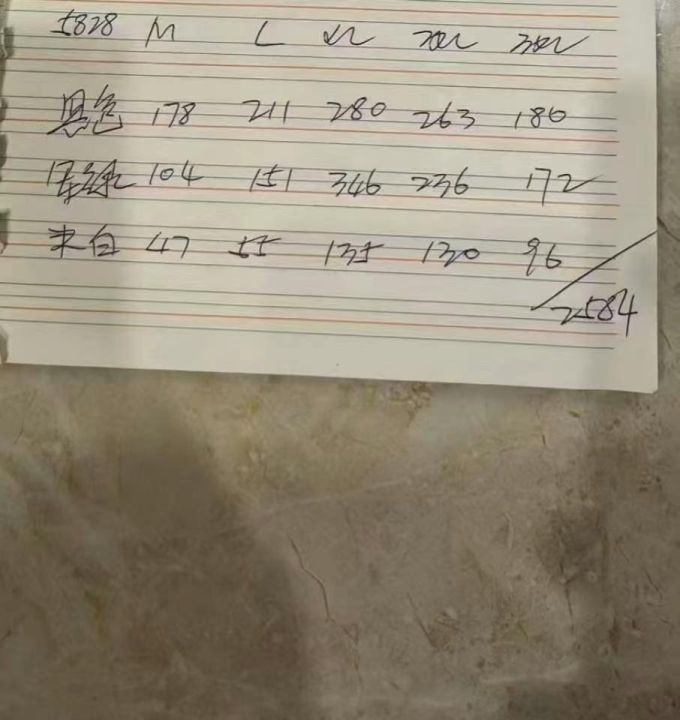 5828 M L XL 2XL 3XL
黑色 178 211 280 263 180
军绿 104 151 346 236 172
米白 47 55 135 130 96
2584